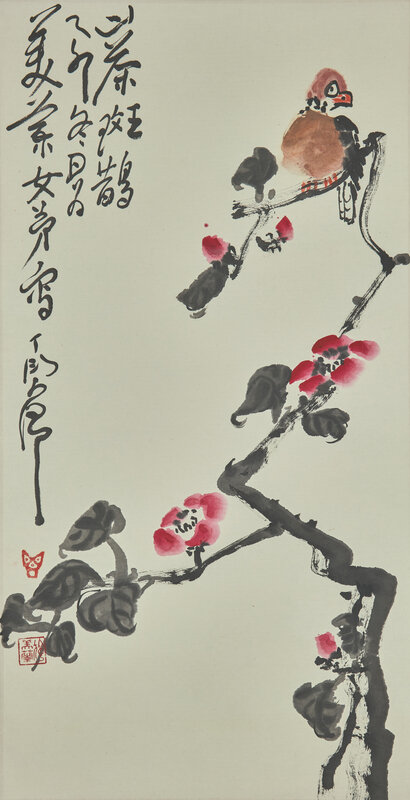 山茶斑鵲
乙卯冬月
美女弟寫丁衍庸